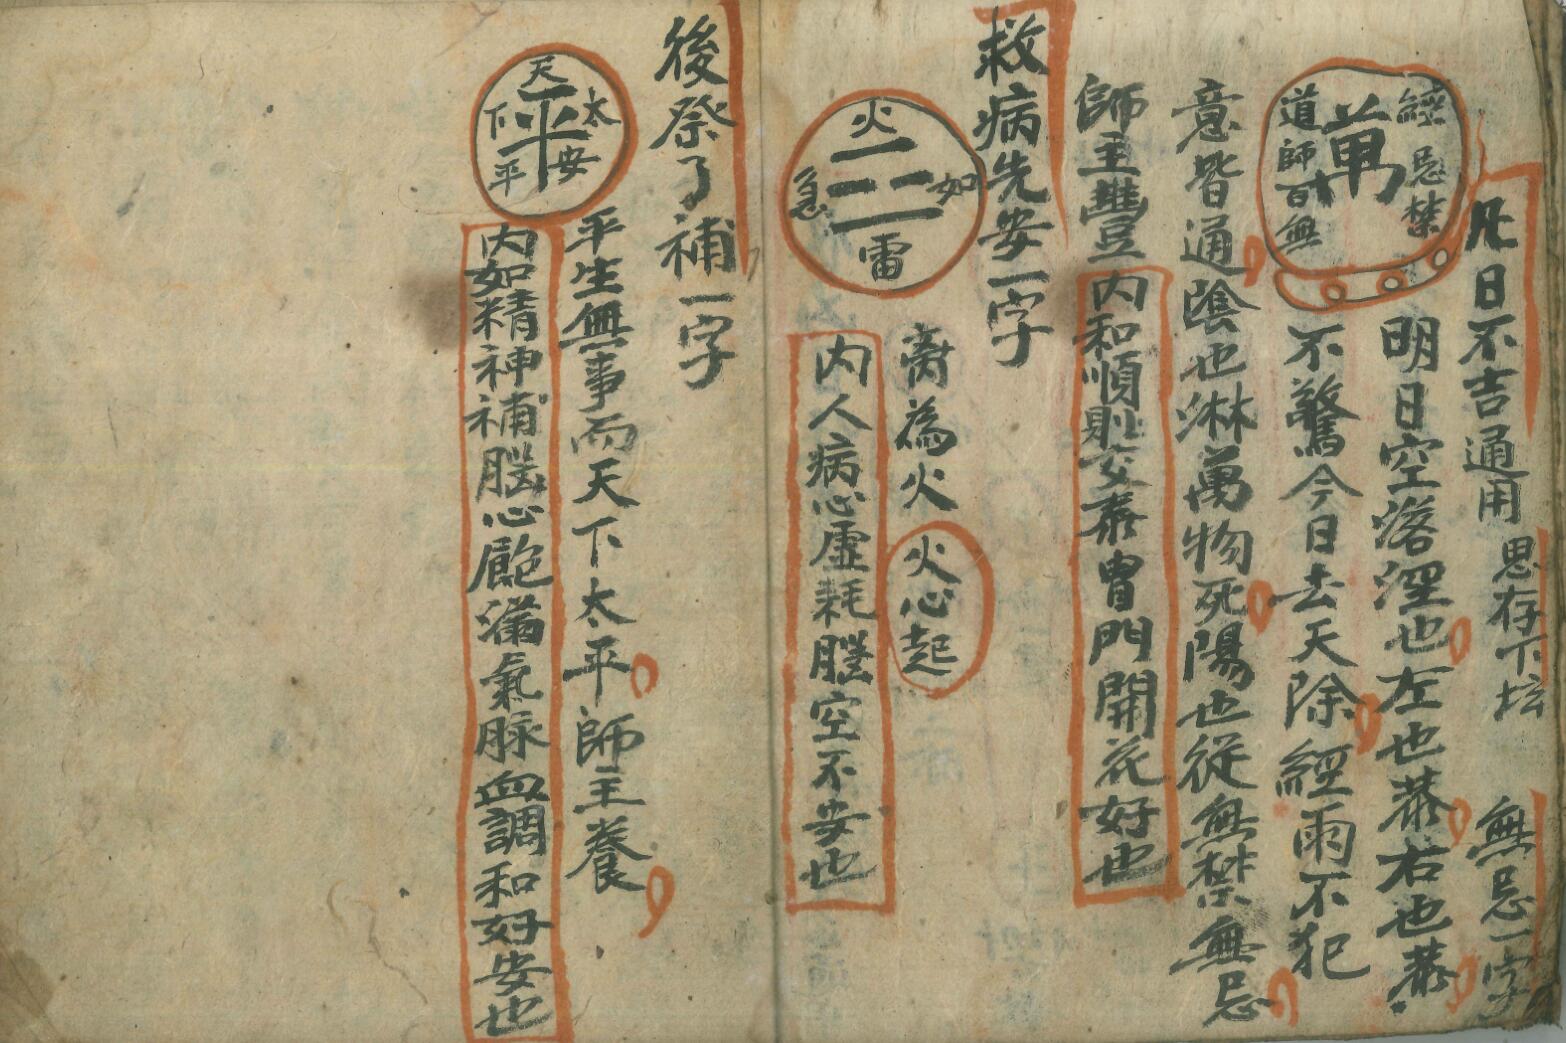 凡日不吉通用 思存下坛 無忌一字
經忌禁
萬
道師百無
明日空落淫也左也恭右也恭
不驚今日去天除經雨不犯
意皆通陰也淋萬物死陽也從無禁無忌
師主豐
内和順則安泰胃門開花好也
救病先安一字
火 如 急 雷
离為火
火心起
内人病心虚耗腦空不安也
後祭了補一字
太安
天平
下平
平生無事而天下太平師主養
内如精神補腦心飽滿氣脉血調和好安也